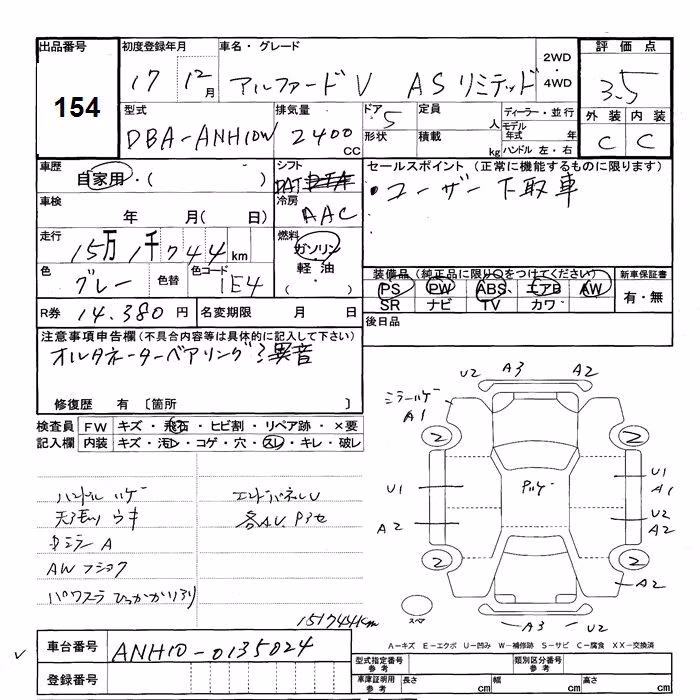 出品番号 初度登録年月 車名・グレード 2WD・4WD 評価点
154 17 12月 アルファードV ASリミテッド 3.5
型式 排気量 ドア 定員 ディーラー・並行 外装 内装
DBA-ANH10W 2400cc 5 人 モデル年式 年 C C
形状 積載 kg ハンドル 左・右
車歴 シフト セールスポイント (正常に機能するものに限ります)
自家用・( ) DAT ・ユーザー下取車
車検 年 月( 日) 冷房 AAC
走行 15万1千744km 燃料 ガソリン 軽油 ( ・ )
色 グレー 色替 色コード 1E4
装備品(純正品に限り○をつけてください) 新車保証書
PS PW ABS エアB AW 有・無
SR ナビ TV カワ
R券 14,380円 名変期限 月 日 後日品
注意事項申告欄(不具合内容等は具体的に記入して下さい)
オルタネーターベアリング異音
修復歴 有 〔箇所 〕
検査員 FW キズ・飛石・ヒビ割・リペア跡・×要
記入欄 内装 キズ・汚レ・コゲ・穴・スレ・キレ・破レ
ハンドルハゲ エンドパネルU
天張りウキ 各AU、Pアセ
AW
パワスラひっかかり有り
151744km
U2 A3 A2
ミラーハゲ
A1
2 2
U1 U1 A1
A2 U2 A2
2 2
A2
スペア
A3 U2
A-キズ E-エクボ U-凹み W-補修跡 S-サビ C-腐食 XX-交換済
車台番号 ANH10-0135024
登録番号
型式指定番号 参考 類別区分番号 参考
車庫証明用 参考 長さ cm 幅 cm 高さ cm